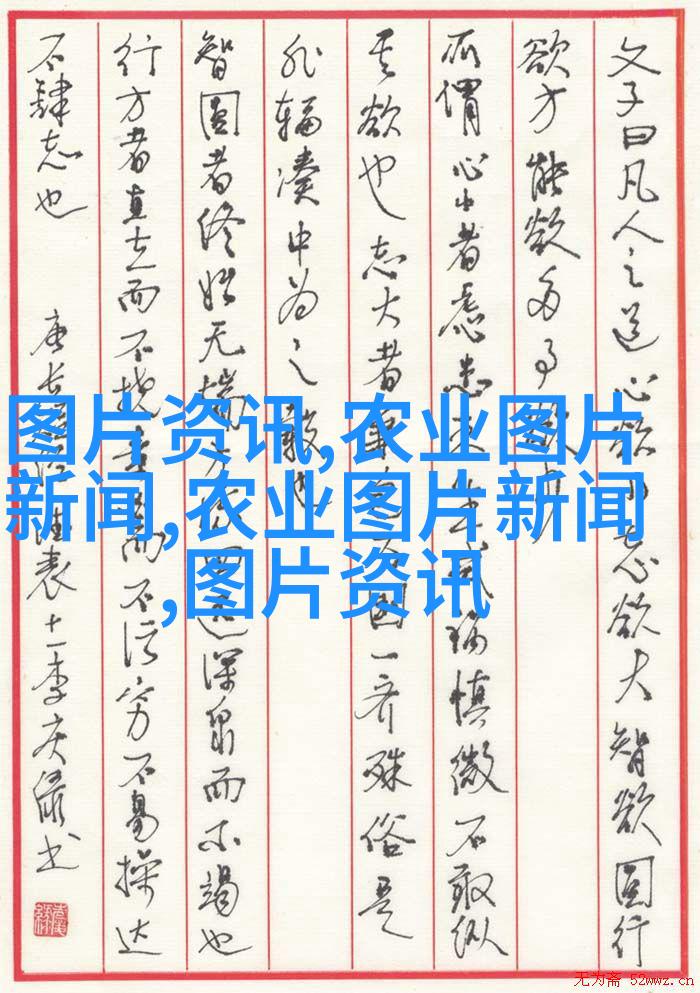 文子曰凡人之道心欲小志欲大智欲圆行
欲方能欲多事欲少
所谓心小者虑患未生戒祸慎微不敢纵
其欲也志大者兼包万国一齐殊俗是
非辐凑中为之毂也
智圆者终始无端方流四远深泉而不竭也
行方者直立而不挠素白而不污穷不易操达
不肆志也
图片资讯,农业图片
新闻,农业图片新闻
,图片资讯
无为斋 52wwz.cn